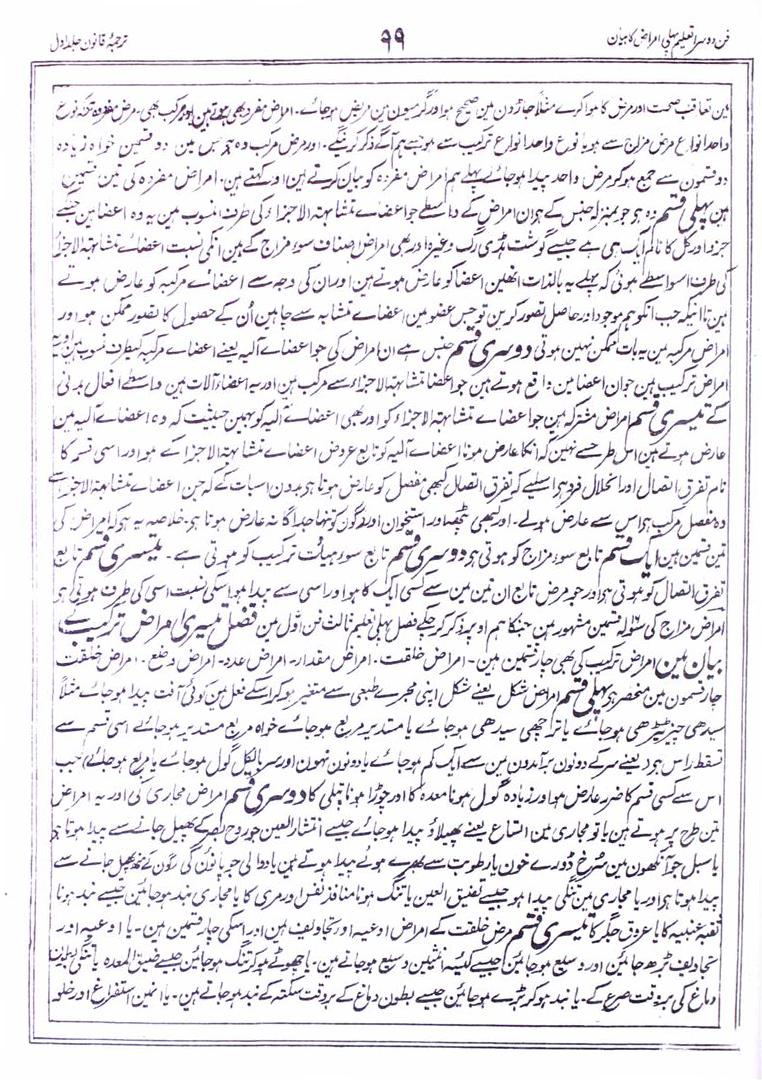 فن دوسرا تعلیم پہلی امراض کا بیان
۹۹
ترجمۂ قانون جلد اول
مین تعاقب صحت اور مرض کا ہوا کرے مثلاً جاڑون مین صحیح ہو اور گرمیون مین مریض ہو جائے۔ امراض مفرد بھی ہوتے ہین اور مرکب بھی۔ مرض مفرد وہ ہے کہ نوع
واحد انواع مرض مزاج سے ہو یا نوع واحد انواع ترکیب سے ہو جیسے ہم آگے ذکر کرینگے۔ اور مرض مرکب وہ ہے جس مین دو قسمین خواہ زیادہ
دو قسمون سے جمع ہو کر مرض واحد پیدا ہو جائے پہلے ہم امراض مفردہ کو بیان کرتے ہین اور کہتے ہین۔ امراض مفردہ کی تین قسمین
ہین پہلی قسم وہ ہے جو بمنزلہ جنس کے ہو ان امراض کے واسطے جو اعضائے متشابہۃ الاجزاء کی طرف منسوب ہین یہ وہ اعضا ہین جنکے
جزو اور کل کا نام ایک ہی ہے جیسے گوشت ہڈی رگ وغیرہ اور یہی امراض اصناف سوء مزاج کے ہین انکی نسبت اعضائے متشابہۃ الاجزا
کی طرف اسواسطے ہوئی کہ پہلے یہ بالذات انھین اعضا کو عارض ہوتے ہین اور ان کی وجہ سے اعضائے مرکبہ کو عارض ہوتے
ہین تا اینکہ جب انکو ہم موجود اور حاصل تصور کرین تو جس عضو مین اعضائے متشابہ سے چاہین اُن کے حصول کا تصور ممکن ہو اور
امراض مرکبہ مین یہ بات ممکن نہین ہوتی دوسری قسم جنس ہے ان امراض کی جو اعضائے آلیہ یعنے اعضائے مرکبہ کیطرف منسوب ہین اور یہ
امراض ترکیب ہین جو ان اعضا مین واقع ہوتے ہین جو اعضا متشابہۃ الاجزاء سے مرکب ہین اور یہ اعضاء آلات ہین واسطے افعال بدنی
کے تیسری قسم امراض مشترکہ ہین جو اعضائے متشابہۃ الاجزاء کو اور بھی اعضائے آلیہ کو بہین حیثیت کہ وہ اعضائے آلیہ ہین
عارض ہوتے ہین اس طرح سے نہین کہ انکا عارض ہونا اعضائے آلیہ کو تابع عروض اعضائے متشابہۃ الاجزا کے ہو اور اسی قسم کا
نام تفرق اتصال اور انحلال فرد ہے اسلیے کہ تفرق اتصال کبھی مفصل کو عارض ہوتا ہے بدون اسبات کے کہ جن اعضائے متشابہۃ الاجزا سے
وہ مفصل مرکب ہے اس سے عارض ہو لے۔ اور کبھی پٹھے اور استخوان اور رگون کو تنہا جداگانہ عارض ہوتا ہے۔ خلاصہ یہ ہے کہ امراض کی
تین قسمین ہین ایک قسم تابع سوء مزاج کو ہوتی ہے دوسری قسم تابع سوء ہیأت ترکیب کو ہوتی ہے۔ تیسری قسم تابع
تفرق اتصال کو ہوتی ہے اور جو مرض تابع ان تین مین سے کسی ایک کا ہو اور اسی سے پیدا ہو اسکی نسبت اسی کی طرف ہوتی ہے
امراض مزاج کی سولہ قسمین مشہور ہین جنکا ہم اوپر ذکر کر چکے فصل پہلی تعلیم ثالث فن اول مین فصل تیسری امراض ترکیب کے
بیان مین امراض ترکیب کی بھی چار قسمین ہین۔ امراض خلقت۔ امراض مقدار۔ امراض عدد۔ امراض وضع۔ امراض خلقت
چار قسمون مین منحصر ہے پہلی قسم امراض شکل یعنے شکل اپنی مجرے طبعی سے متغیر ہو کر اسکے فعل مین کوئی آفت پیدا ہو جائے مثلاً
سیدھی چیز ٹیڑھی ہو جائے یا ترچھی سیدھی ہو جائے یا مستدیر مربع ہو جائے خواہ مربع مستدیر ہو جائے اسی قسم سے
تسفط راس ہے یعنے سر کے دونون برآمدون مین سے ایک کم ہو جائے یا دونون نہون اور سر بالکل گول ہو جائے یا مربع ہو جائے جب
اس سے کسی قسم کا ضرر عارض ہو اور زیادہ گول ہونا معدے کا اور چوڑا ہونا پتلی کا دوسری قسم امراض مجاری کی اور یہ امراض
تین طرح پر ہوتے ہین یا تو مجاری مین اتساع یعنے پھیلاؤ پیدا ہو جائے جیسے انتشار العین جو روح بصر کے پھیل جانے سے پیدا ہوتا ہے
یا سبل جو آنکھون مین سرخ ڈورے خون یا رطوبت سے بھرے ہوئے پیدا ہوتے ہین یا دوالی جو پانؤن کی رگون کے پھیل جانے سے
پیدا ہوتا ہے اور یا مجاری مین تنگی پیدا ہو جیسے تضیق العین یا تنگ ہونا منافذ نفس اور مری کا یا مجاری بند ہو جائین جیسے بند ہونا
ثقبہ عنبیہ کا یا عروق جگر کا تیسری قسم مرض خلقت کے امراض اوعیہ اور تجاویف ہین اور اسکی چار قسمین ہین۔ یا اوعیہ اور
تجاویف بڑھ جائین اور وسیع ہو جائین جیسے کیسہ انثیین وسیع ہو جاتے ہین۔ یا چھوٹے ہو کر تنگ ہو جائین جیسے ضیق المعدہ یا تنگی بطون
دماغ کی بروقت صرع کے۔ یا بند ہو کر بڑے ہو جائین جیسے بطون دماغ کے بروقت سکتہ کے بند ہو جاتے ہین۔ یا انمین استفراغ اور خلو